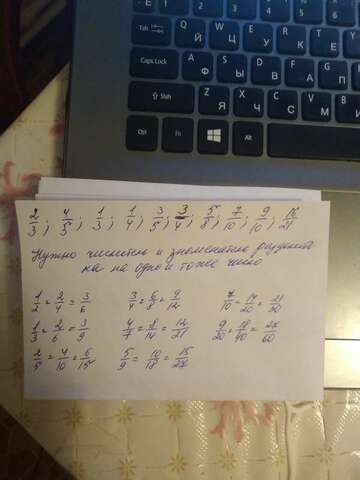 Tab Й Ц У К Е Н
Caps Lock Ф Ы В А П
Shift Z Я X Ч C С V М B И
Ctrl Fn Alt
2/3; 4/5; 1/3; 1/4; 3/5; 3/4; 5/8; 7/10; 9/10; 16/21
Нужно числитель и знаменатель
ка на одно и тоже число
1/2 = 2/4 = 3/6 3/4 = 6/8 = 9/12 7/10 = 14/20 = 21/30
1/3 = 2/6 = 3/9 4/7 = 8/14 = 12/21 9/20 = 18/40 = 27/60
2/5 = 4/10 = 6/15 5/9 = 10/18 = 15/27